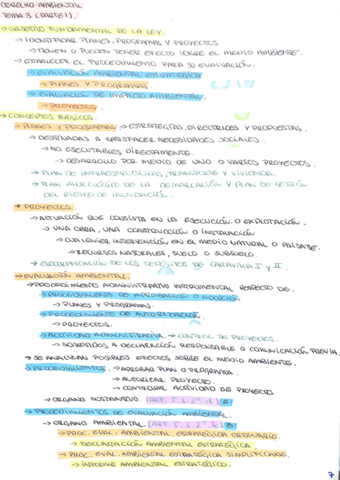 DERECHO AMBIENTAL
TEMA 3 (PARTE I).
→ OBJETIVO FUNDAMENTAL DE LA LEY.
→ IDENTIFICAR PLANES, PROGRAMAS Y PROYECTOS.
→ TIENEN O PUEDEN TENER EFECTO SOBRE EL MEDIO AMBIENTE.
→ ESTABLECER EL PROCEDIMIENTO PARA SU EVALUACIÓN.
→ EVALUACIÓN AMBIENTAL ESTRATÉGICA
→ PLANES Y PROGRAMAS.
→ EVALUACIÓN DE IMPACTO AMBIENTAL.
→ PROYECTOS.
→ CONCEPTOS BÁSICOS.
→ PLANES Y PROGRAMAS → ESTRATEGIAS, DIRECTRICES Y PROPUESTAS.
→ DESTINADAS A SATISFACER NECESIDADES SOCIALES.
→ NO EJECUTABLES DIRECTAMENTE.
→ DESARROLLO POR MEDIO DE UNO O VARIOS PROYECTOS.
→ PLAN DE INFRAESTRUCTURAS, TRANSPORTE Y VIVIENDA.
→ PLAN HIDROLÓGICO DE LA DEMARCACIÓN Y PLAN DE GESTIÓN
DEL RIESGO DE INUNDACIÓN.
→ PROYECTOS.
→ ACTUACIÓN QUE CONSISTA EN LA EJECUCIÓN O EXPLOTACIÓN.
→ UNA OBRA, UNA CONSTRUCCIÓN O INSTALACIÓN
→ CUALQUIER INTERVENCIÓN EN EL MEDIO NATURAL O PAISAJE.
→ RECURSOS NATURALES, SUELO O SUBSUELO.
→ ELECTRIFICACIÓN DE LOS DEPÓSITOS DE CARAVACA I Y II.
→ EVALUACIÓN AMBIENTAL.
→ PROCEDIMIENTO ADMINISTRATIVO INSTRUMENTAL RESPECTO DE:
→ PROCEDIMIENTO DE APROBACIÓN O ADOPCIÓN
→ PLANES Y PROGRAMAS.
→ PROCEDIMIENTO DE AUTORIZACIÓN.
→ PROYECTOS.
→ ACTIVIDAD ADMINISTRATIVA → CONTROL DE PROYECTOS.
→ SOMETIDOS A DECLARACIÓN RESPONSABLE O COMUNICACIÓN PREVIA.
→ SE ANALIZAN POSIBLES EFECTOS SOBRE EL MEDIO AMBIENTE.
→ PROCEDIMIENTOS → APROBAR PLAN O PROGRAMA.
→ AUTORIZAR PROYECTO.
→ CONTROLAR ACTIVIDAD DE PROYECTO
→ ÓRGANO SUSTANTIVO. A
→ PROCEDIMIENTOS DE EVALUACIÓN AMBIENTAL.
→ ÓRGANO AMBIENTAL B
→ PROC. EVAL. AMBIENTAL ESTRATÉGICA ORDINARIO.
→ DECLARACIÓN AMBIENTAL ESTRATÉGICA.
→ PROC. EVAL. AMBIENTAL ESTRATÉGICA SIMPLIFICADO.
→ INFORME AMBIENTAL ESTRATÉGICO.
7